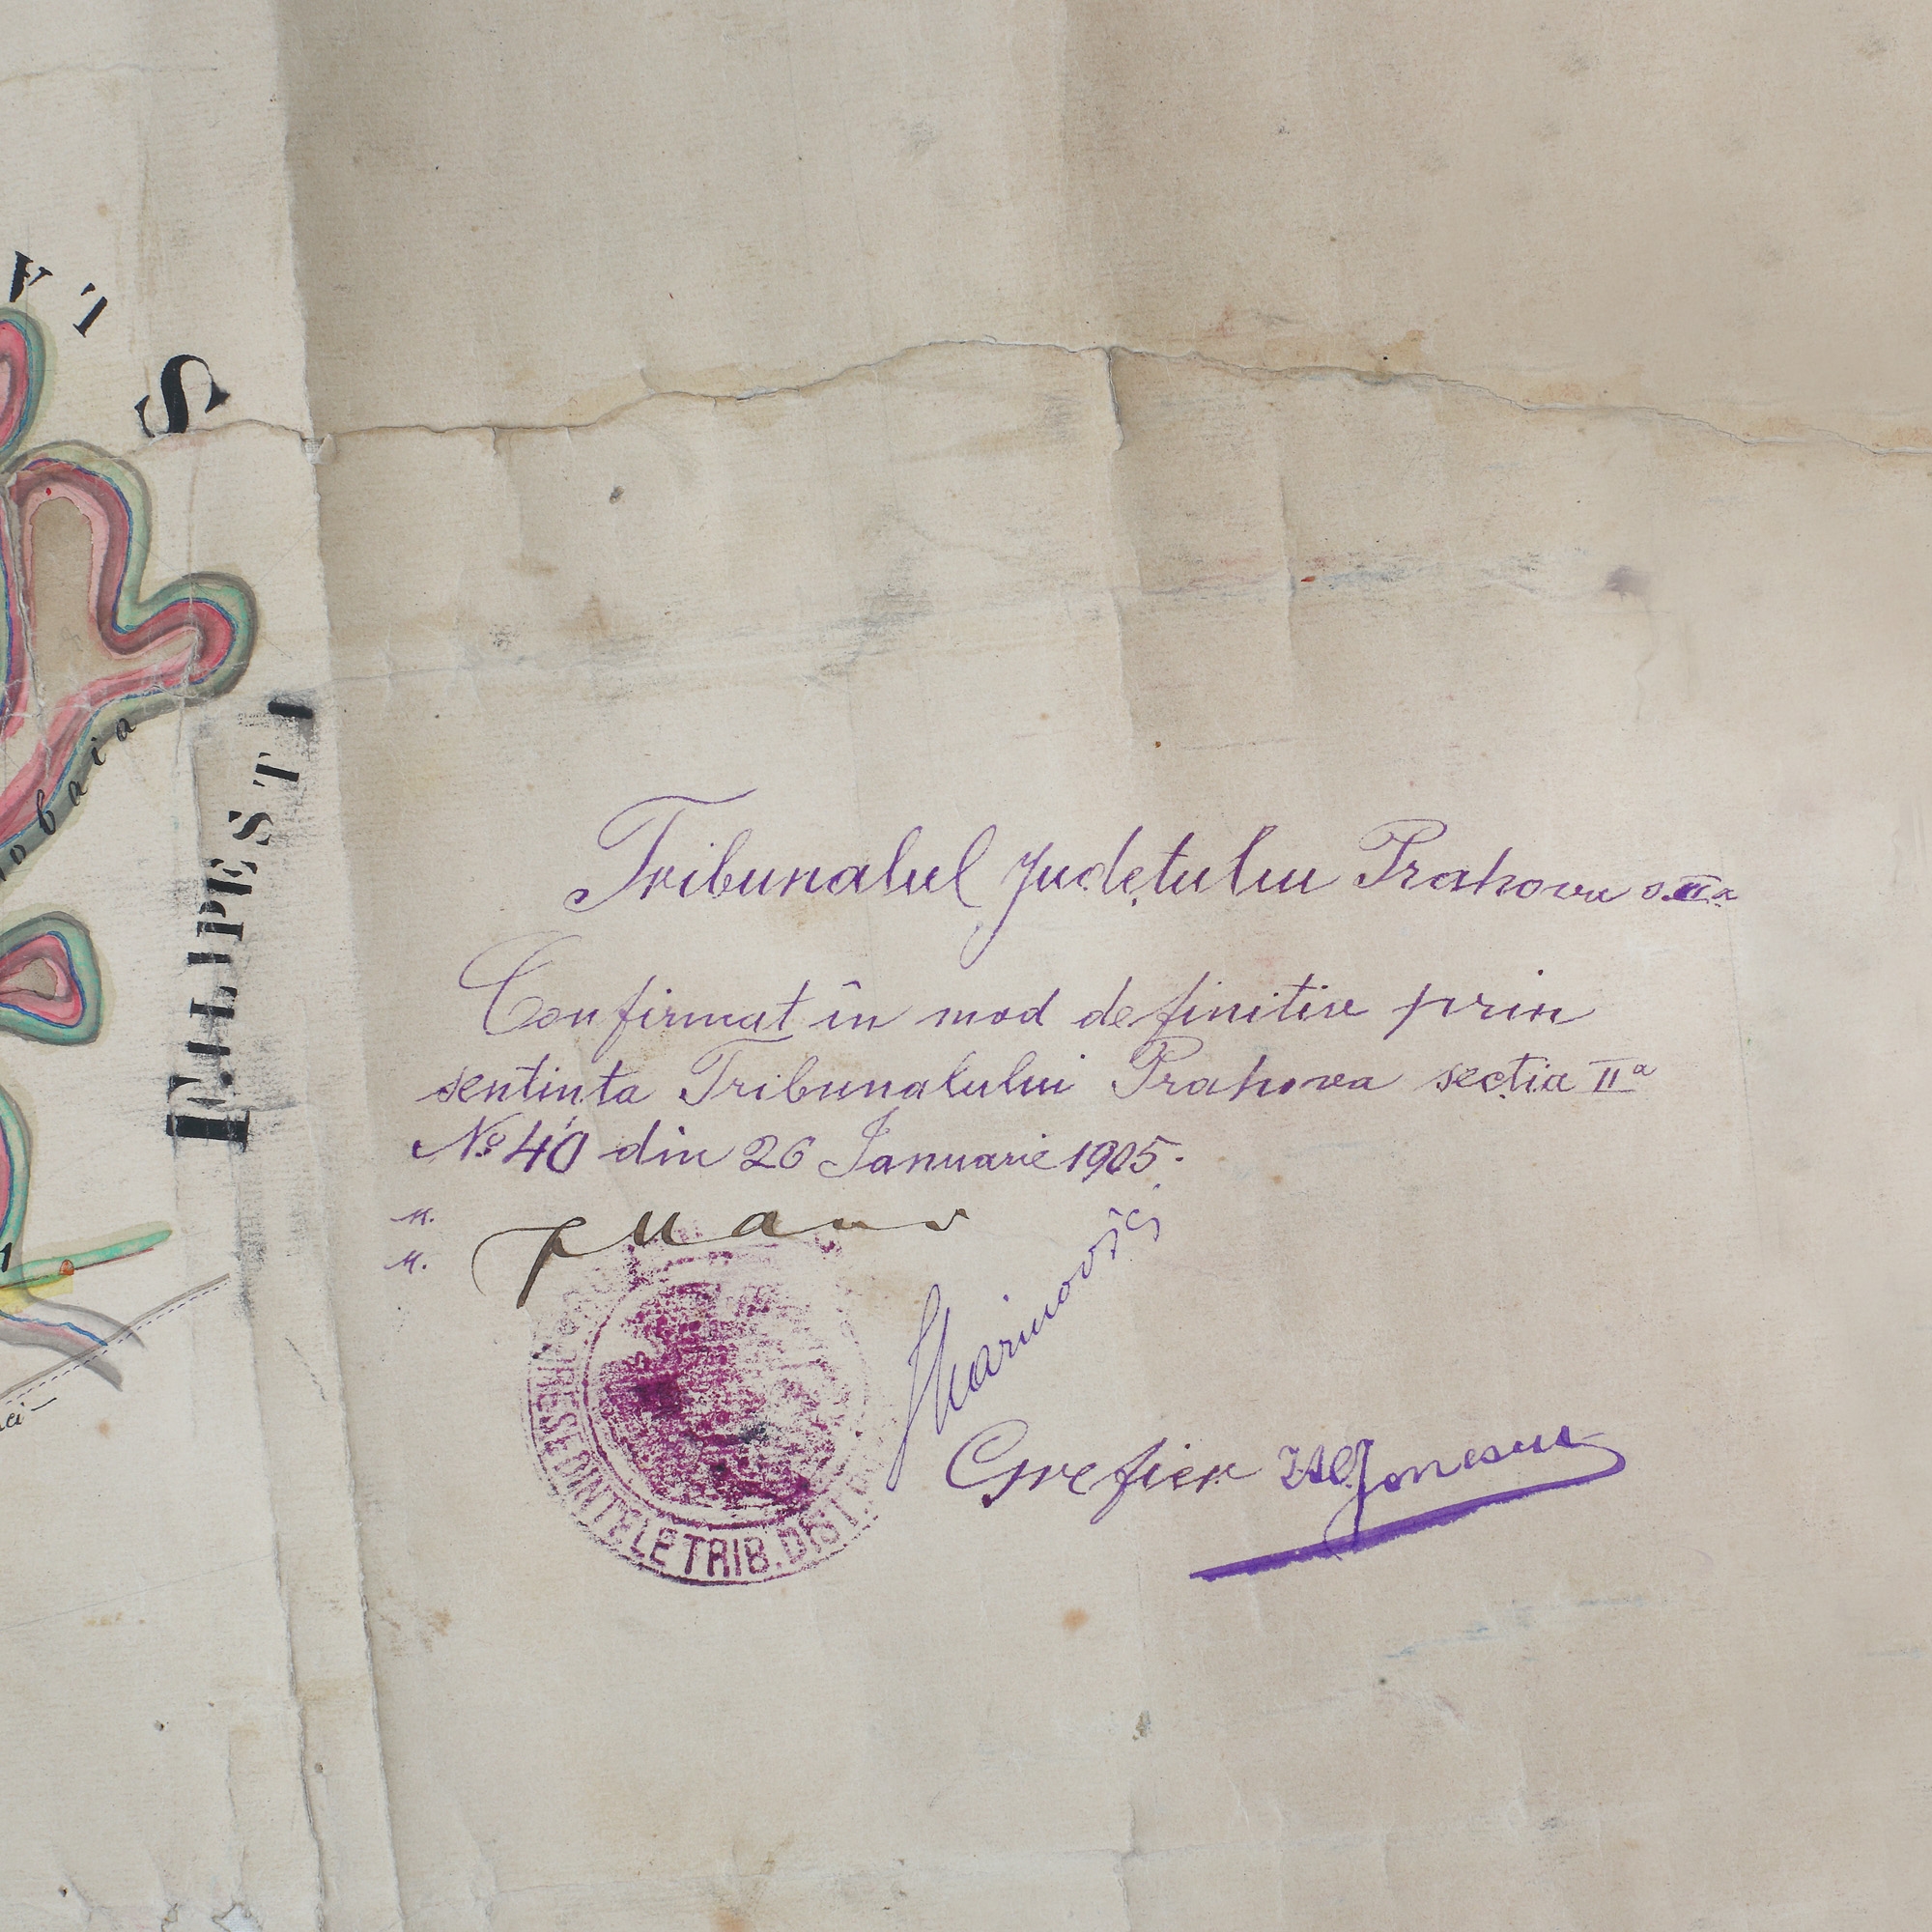 LA
S
FILIPEST I
obaia
Tribunalul Județului Prahova s. II a
Confirmat în mod definitiv prin
sentința Tribunalului Prahova secția II a
No 40 din 26 Ianuarie 1905.
M.
M.
Marinovici
PREȘEDINTELE TRIB. DIST.
Grefier Ionescu